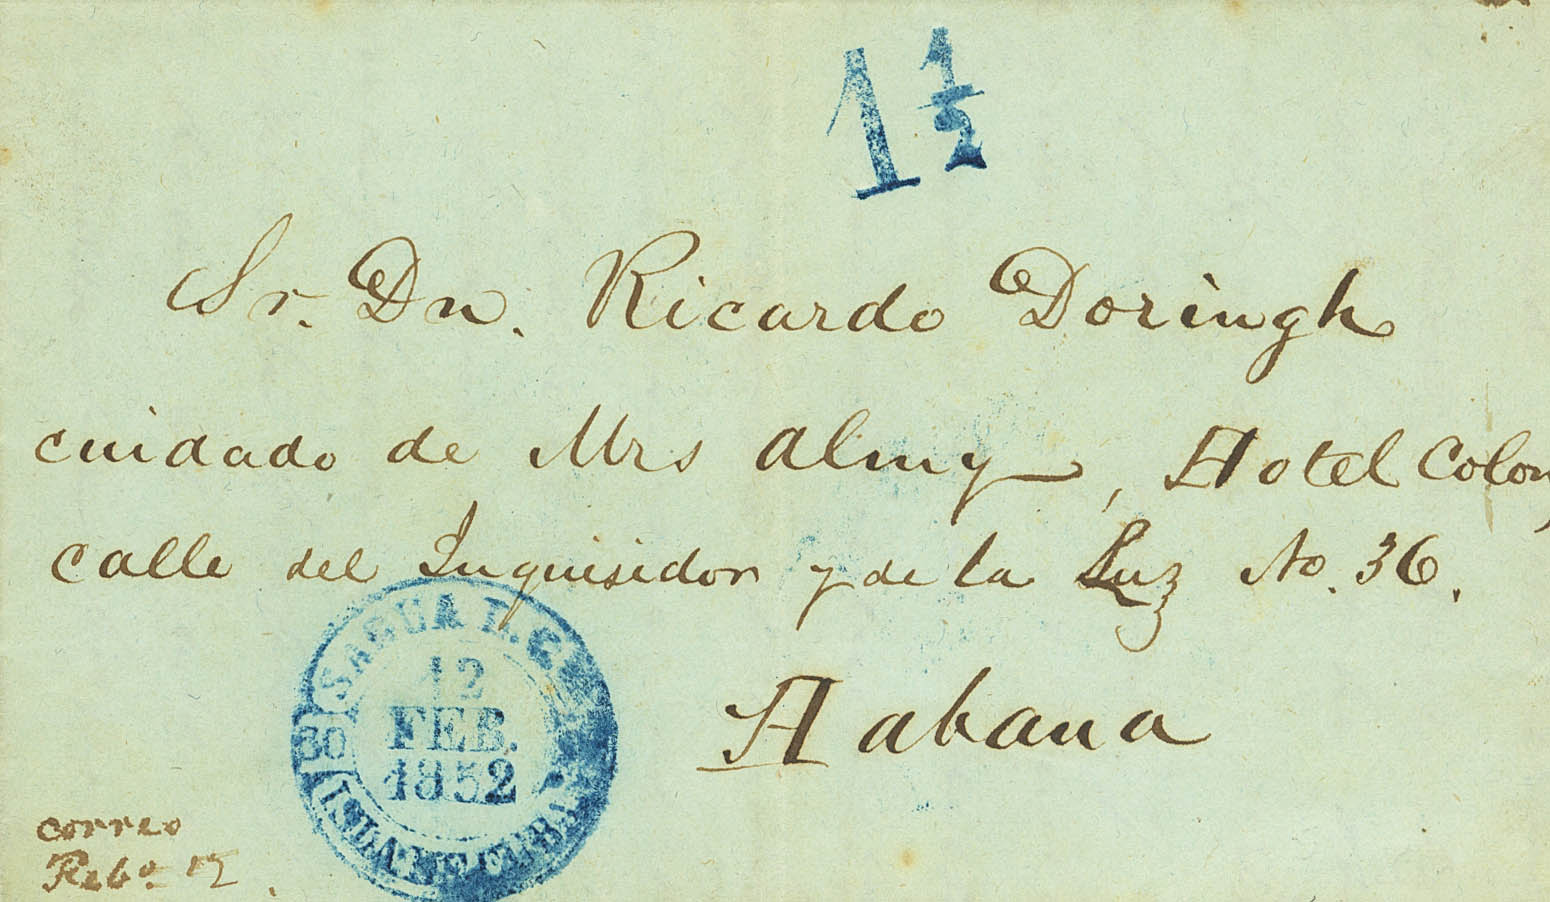 1 1/2
Sr. Dn. Ricardo Doringh
cuidado de Mrs Almy, Hotel Colon,
calle del Inquisidor y de la Luz No. 36.
Habana
SAGUA L. G.
12
FEB.
1852
30
ISLA DE CUBA
correo
Feb.o 12